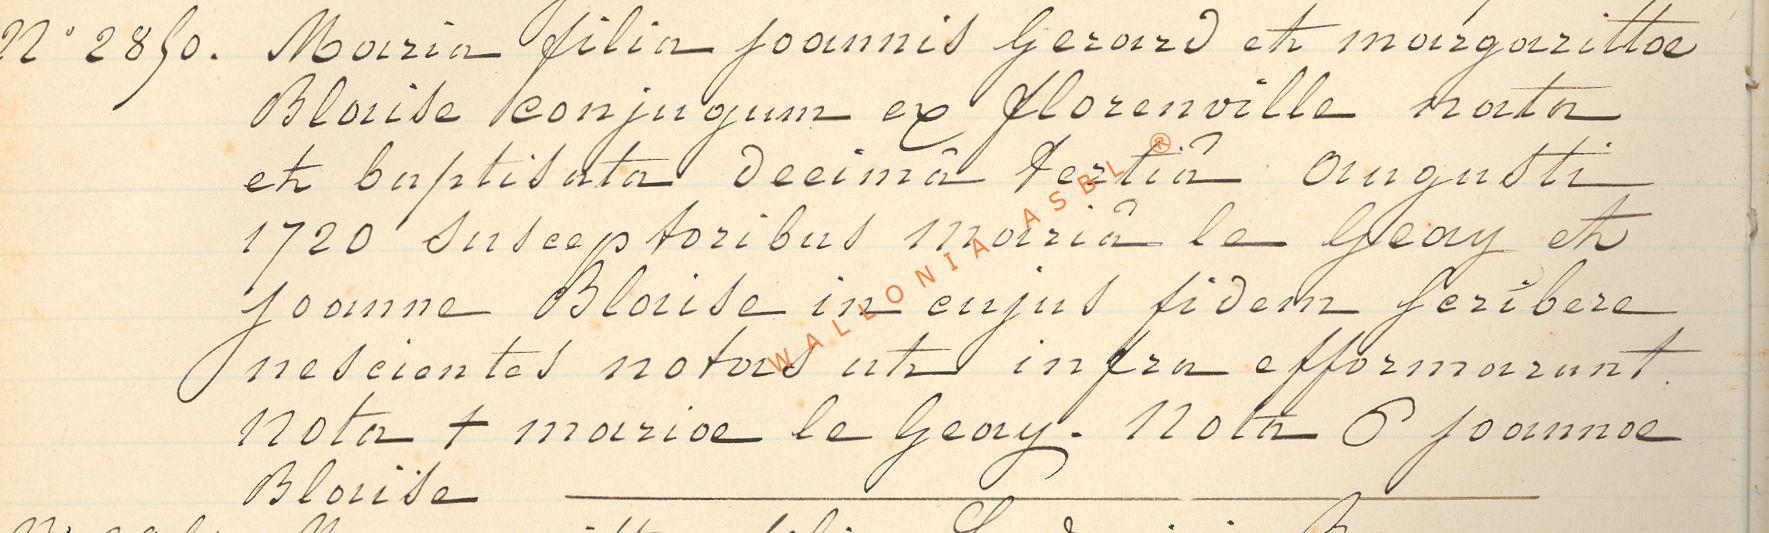 N° 2850. Maria filia Joannis Gerard et margarittae
Blaise conjugum ex florenville nata
et baptisata decimâ tertiâ Augusti
1720 susceptoribus mariâ le Geay et
Joanne Blaise in cujus fidem scribere
nescientes notas ut infra efformarunt.
Nota + mariae le Geay. Nota 6 Joannae
Blaise
WALLONIA ASBL ®